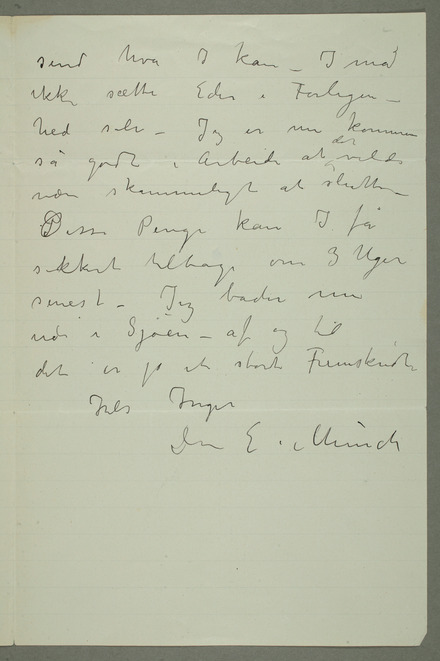 send hva I kan – I må
ikke sætte Eder i Forlegen–
hed selv – Jeg er nu kommen
så godt i Arbeide at det vilde
være skammeligt at slutte –
Disse Penge kan I få
sikkert tilbage om 3 Uger
senest – Jeg bader nu
ude i Sjøen – af og til
det er jo et stort Fremskridt
Hils Inger
Din E. Munch